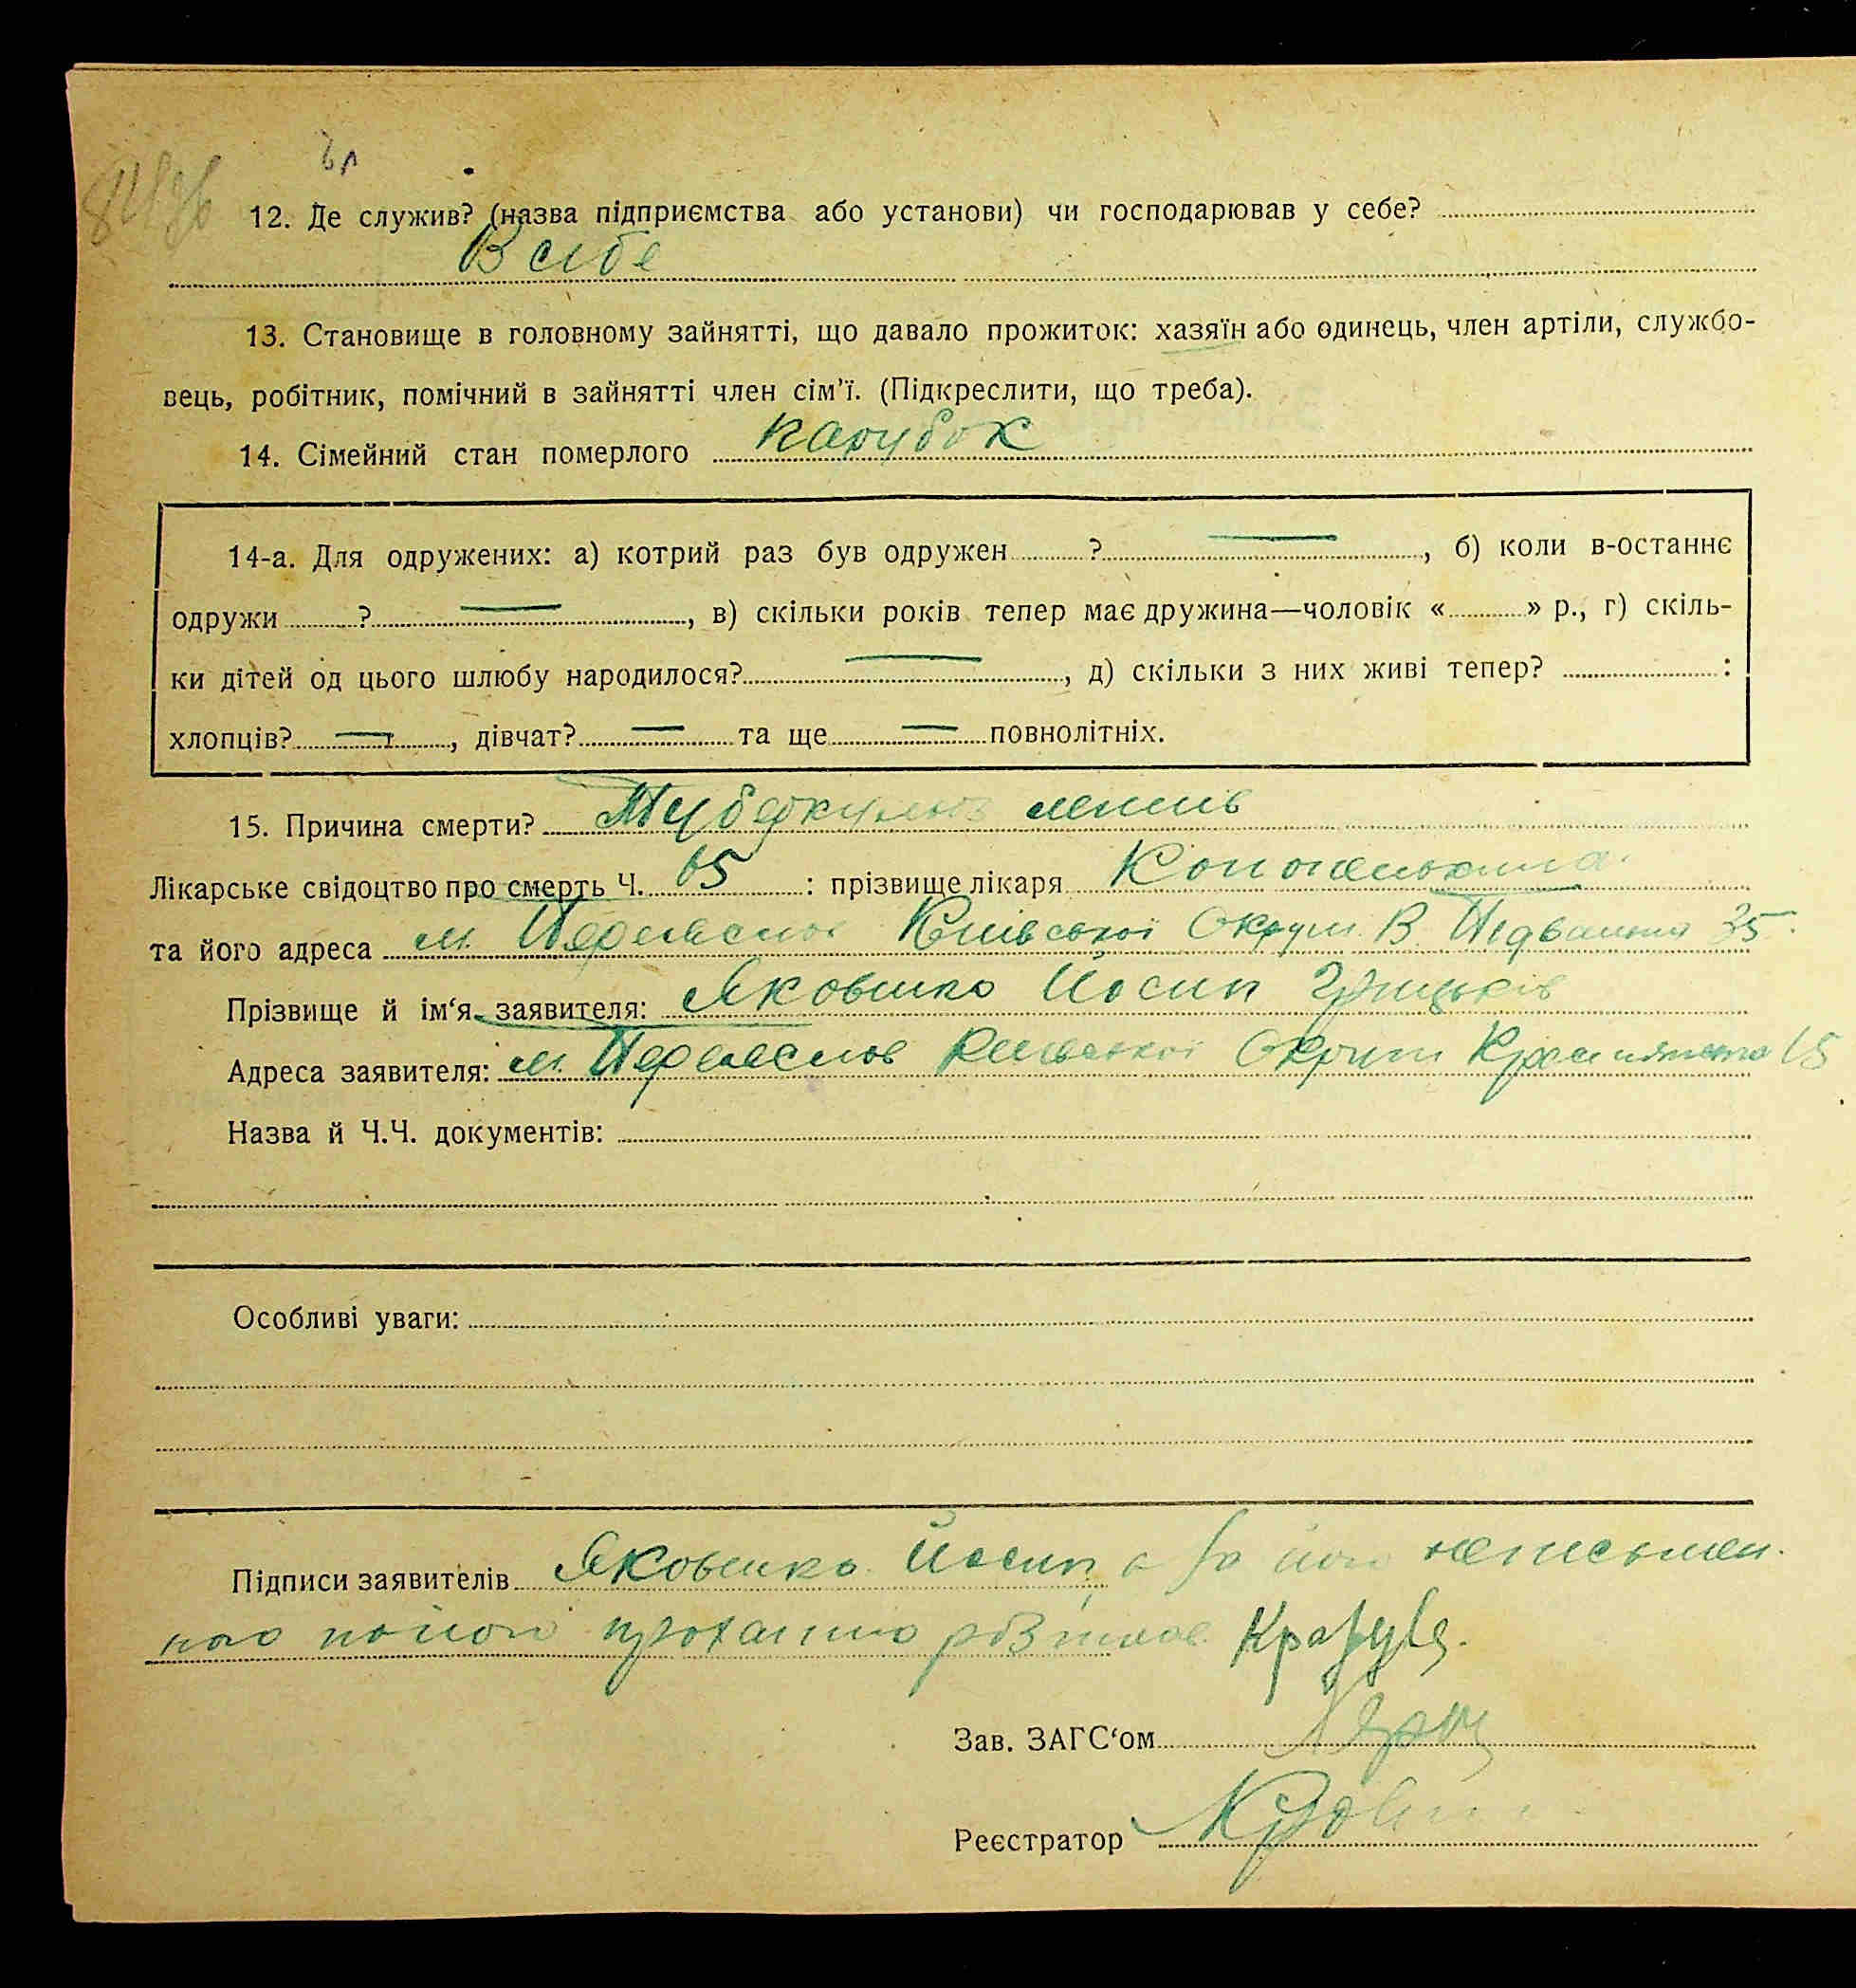 12. Де служив? (назва підприємства або установи) чи господарював у себе?
В себе
13. Становище в головному зайнятті, що давало прожиток: хазяїн або одинець, член артіли, службо-
вець, робітник, помічний в зайнятті член сім'ї. (Підкреслити, що треба).
14. Сімейний стан померлого парубок
14-а. Для одружених: а) котрий раз був одружен ? —, б) коли в-останнє
одружи ? —, в) скільки років тепер має дружина—чоловік « » р., г) скіль-
ки дітей од цього шлюбу народилося? —, д) скільки з них живі тепер? :
хлопців? —, дівчат? — та ще — повнолітніх.
15. Причина смерти? Туберкульоз легенів
Лікарське свідоцтво про смерть Ч. 65 : прізвище лікаря
та його адреса м. Переяслов Київської Округи В. Підвальна 35
Прізвище й ім'я заявителя: Яковенко Йосип Грицьків
Адреса заявителя: м. Переяслов Київської Округи 15
Назва й Ч.Ч. документів:
Особливі уваги:
Підписи заявителів Яковенко Йосип, а за його неписьмен-
ного по його проханню
Зав. ЗАГС'ом
Реєстратор